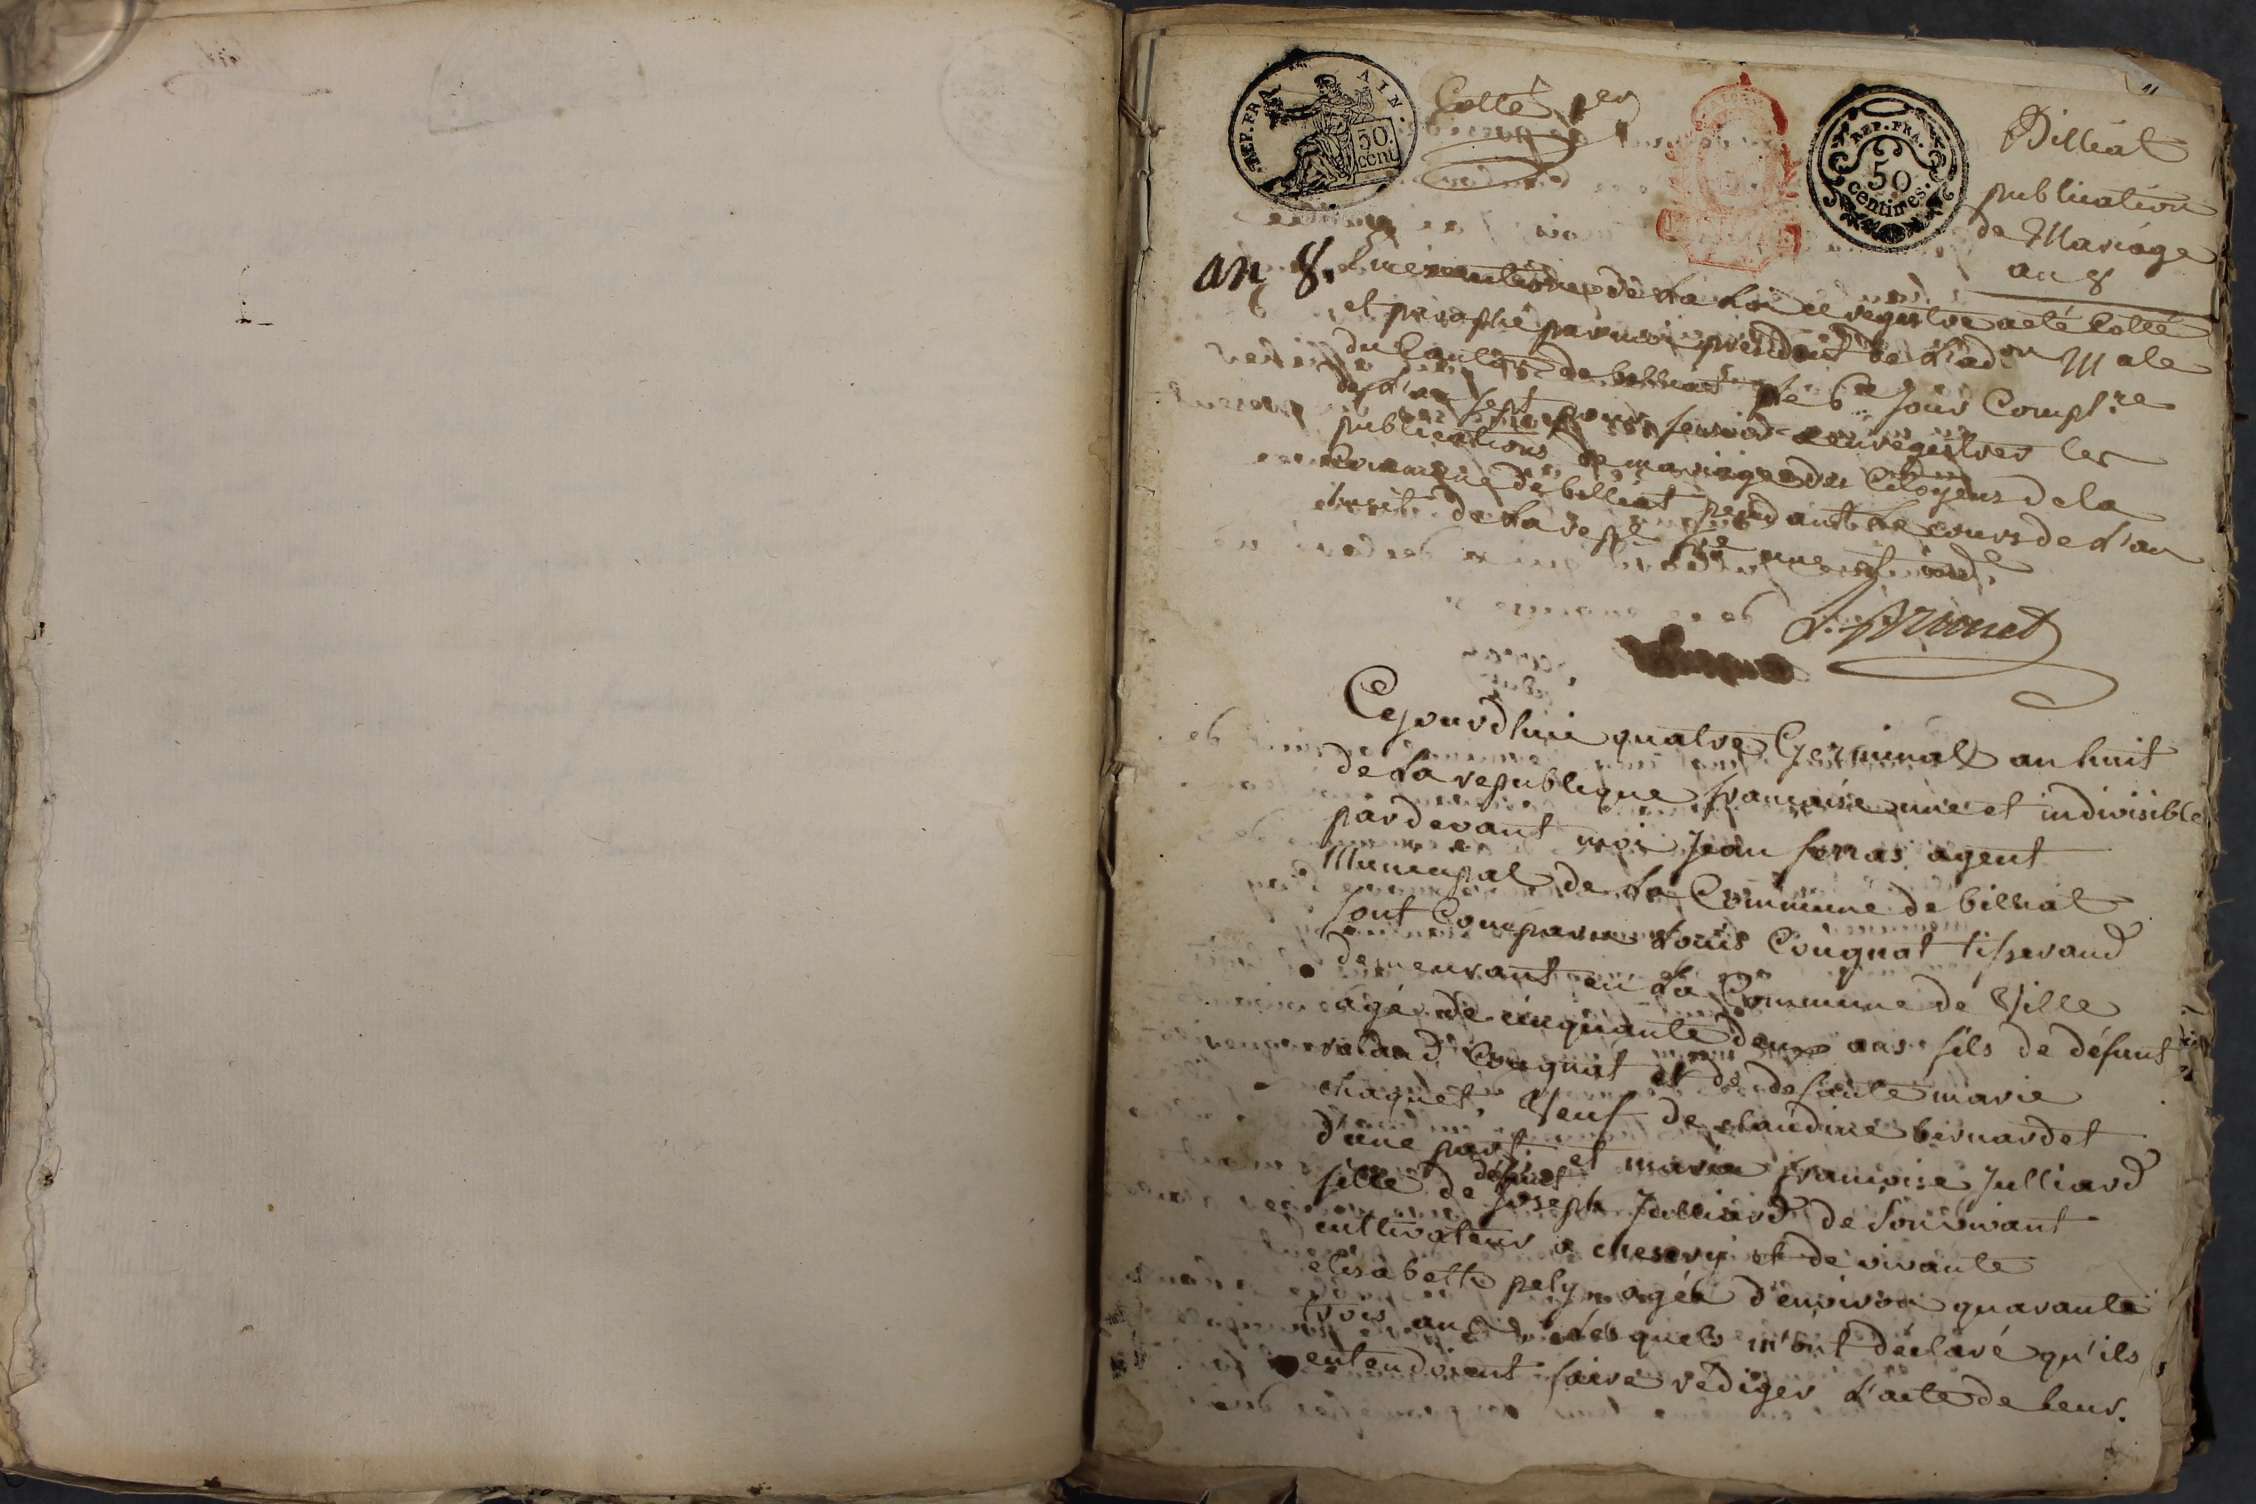 REP. FRA. AIN.
50.
cent.
Cotté 1er
REP. FRA.
50
centimes.
Billiat
publication
de Mariage
an 8
an 8.
En execution de la Loi ce registre a eté Cotté
et paraphé par moi president de l'adon Male
du Canton de billiat le 6e Jour Complre
de l'an sept pour servir a enregistrer les
publications de mariage des Citoyens de la
Commune de billiat pendant le cours de l'an
huit de la repe fse une et indle
Cejourdhui quatre Germinal an huit
de La republique française une et indivisible
pardevant moi Jean ferras agent
Municipal de La Commune de billiat
sont Comparu Louis Cougnat tisserand
demeurant en La Commune de Ville
agé de cinquante deux ans fils de défunt
roland Cougnat et de defunte marie
chaquet, Veuf de claudine bernardet
d'une part. et marie françoise Julliard
fille de défunt Joseph Julliard de son vivant
cultivateur a chesery et de vivante
elisabette pely agée d'environ quarante
trois ans Lesquels m'ont déclaré qu'ils
entendoient faire rédiger L'acte de leur.